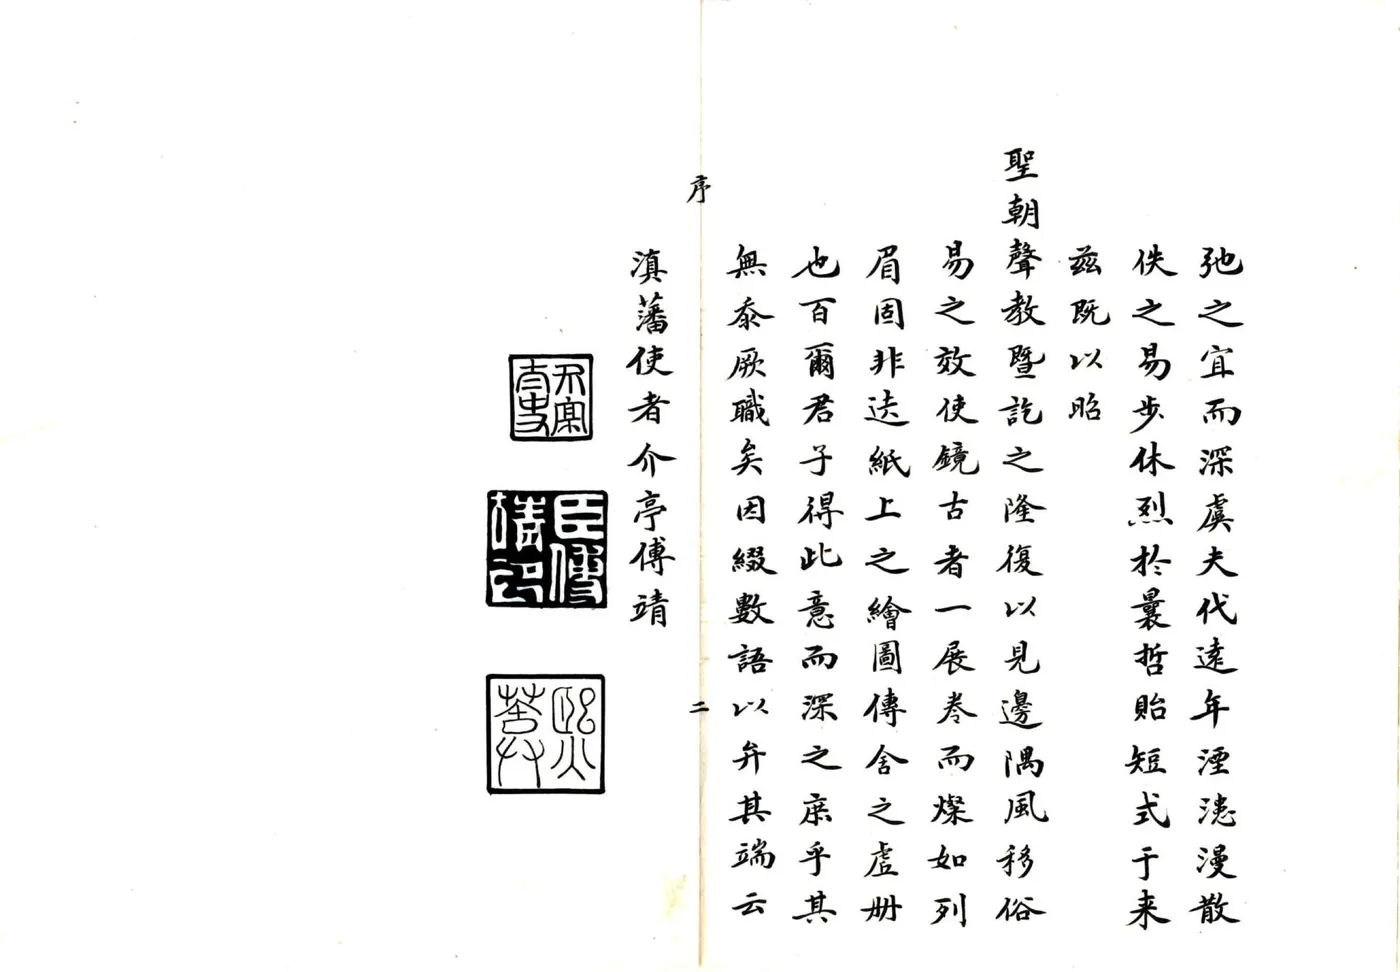 弛之宜而深虞夫代遠年湮漶漫散
佚之易步休烈於曩哲貽短式于来
茲既以昭
聖朝聲教暨訖之隆復以見邊隅風移俗
易之效使鏡古者一展卷而燦如列
眉固非迭紙上之繪圖傳舍之虛册
也百爾君子得此意而深之庶乎其
無忝厥職矣因綴數語以弁其端云
滇藩使者介亭傅靖
臣傅靖印
序
二